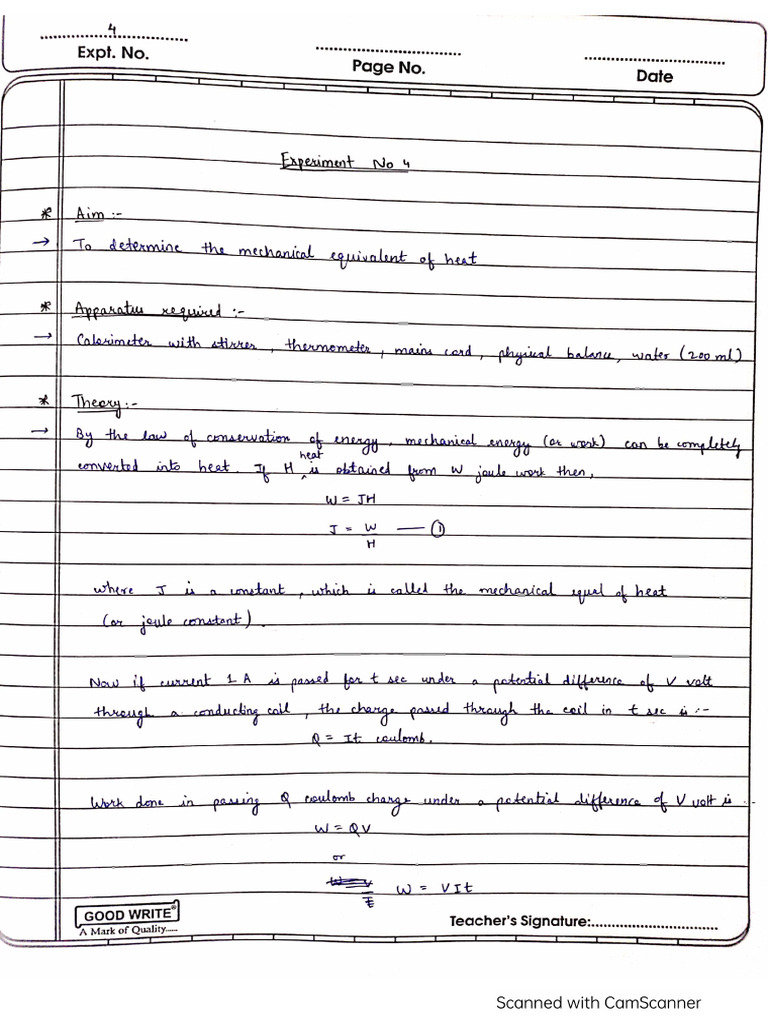 4
Expt. No.
Page No.
Date
Experiment No 4
* Aim :-
→ To determine the mechanical equivalent of heat
* Apparatus required :-
→ Calorimeter with stirrer , thermometer , mains cord , physical balance, water (200 ml)
* Theory :-
→ By the law of conservation of energy , mechanical energy (or work) can be completely
converted into heat. If H heat is obtained from W joule work then,
W = JH
J = W/H — ①
where J is a constant , which is called the mechanical equal of heat
(or joule constant) .
Now if current 1 A is passed for t sec under a potential difference of V volt
through a conducting coil , the charge passed through the coil in t sec is :-
Q = It coulomb.
Work done in passing Q coulomb charge under a potential difference of V volt is :-
W = QV
or
W = VIt
GOOD WRITE®
A Mark of Quality.....
Teacher's Signature:
Scanned with CamScanner